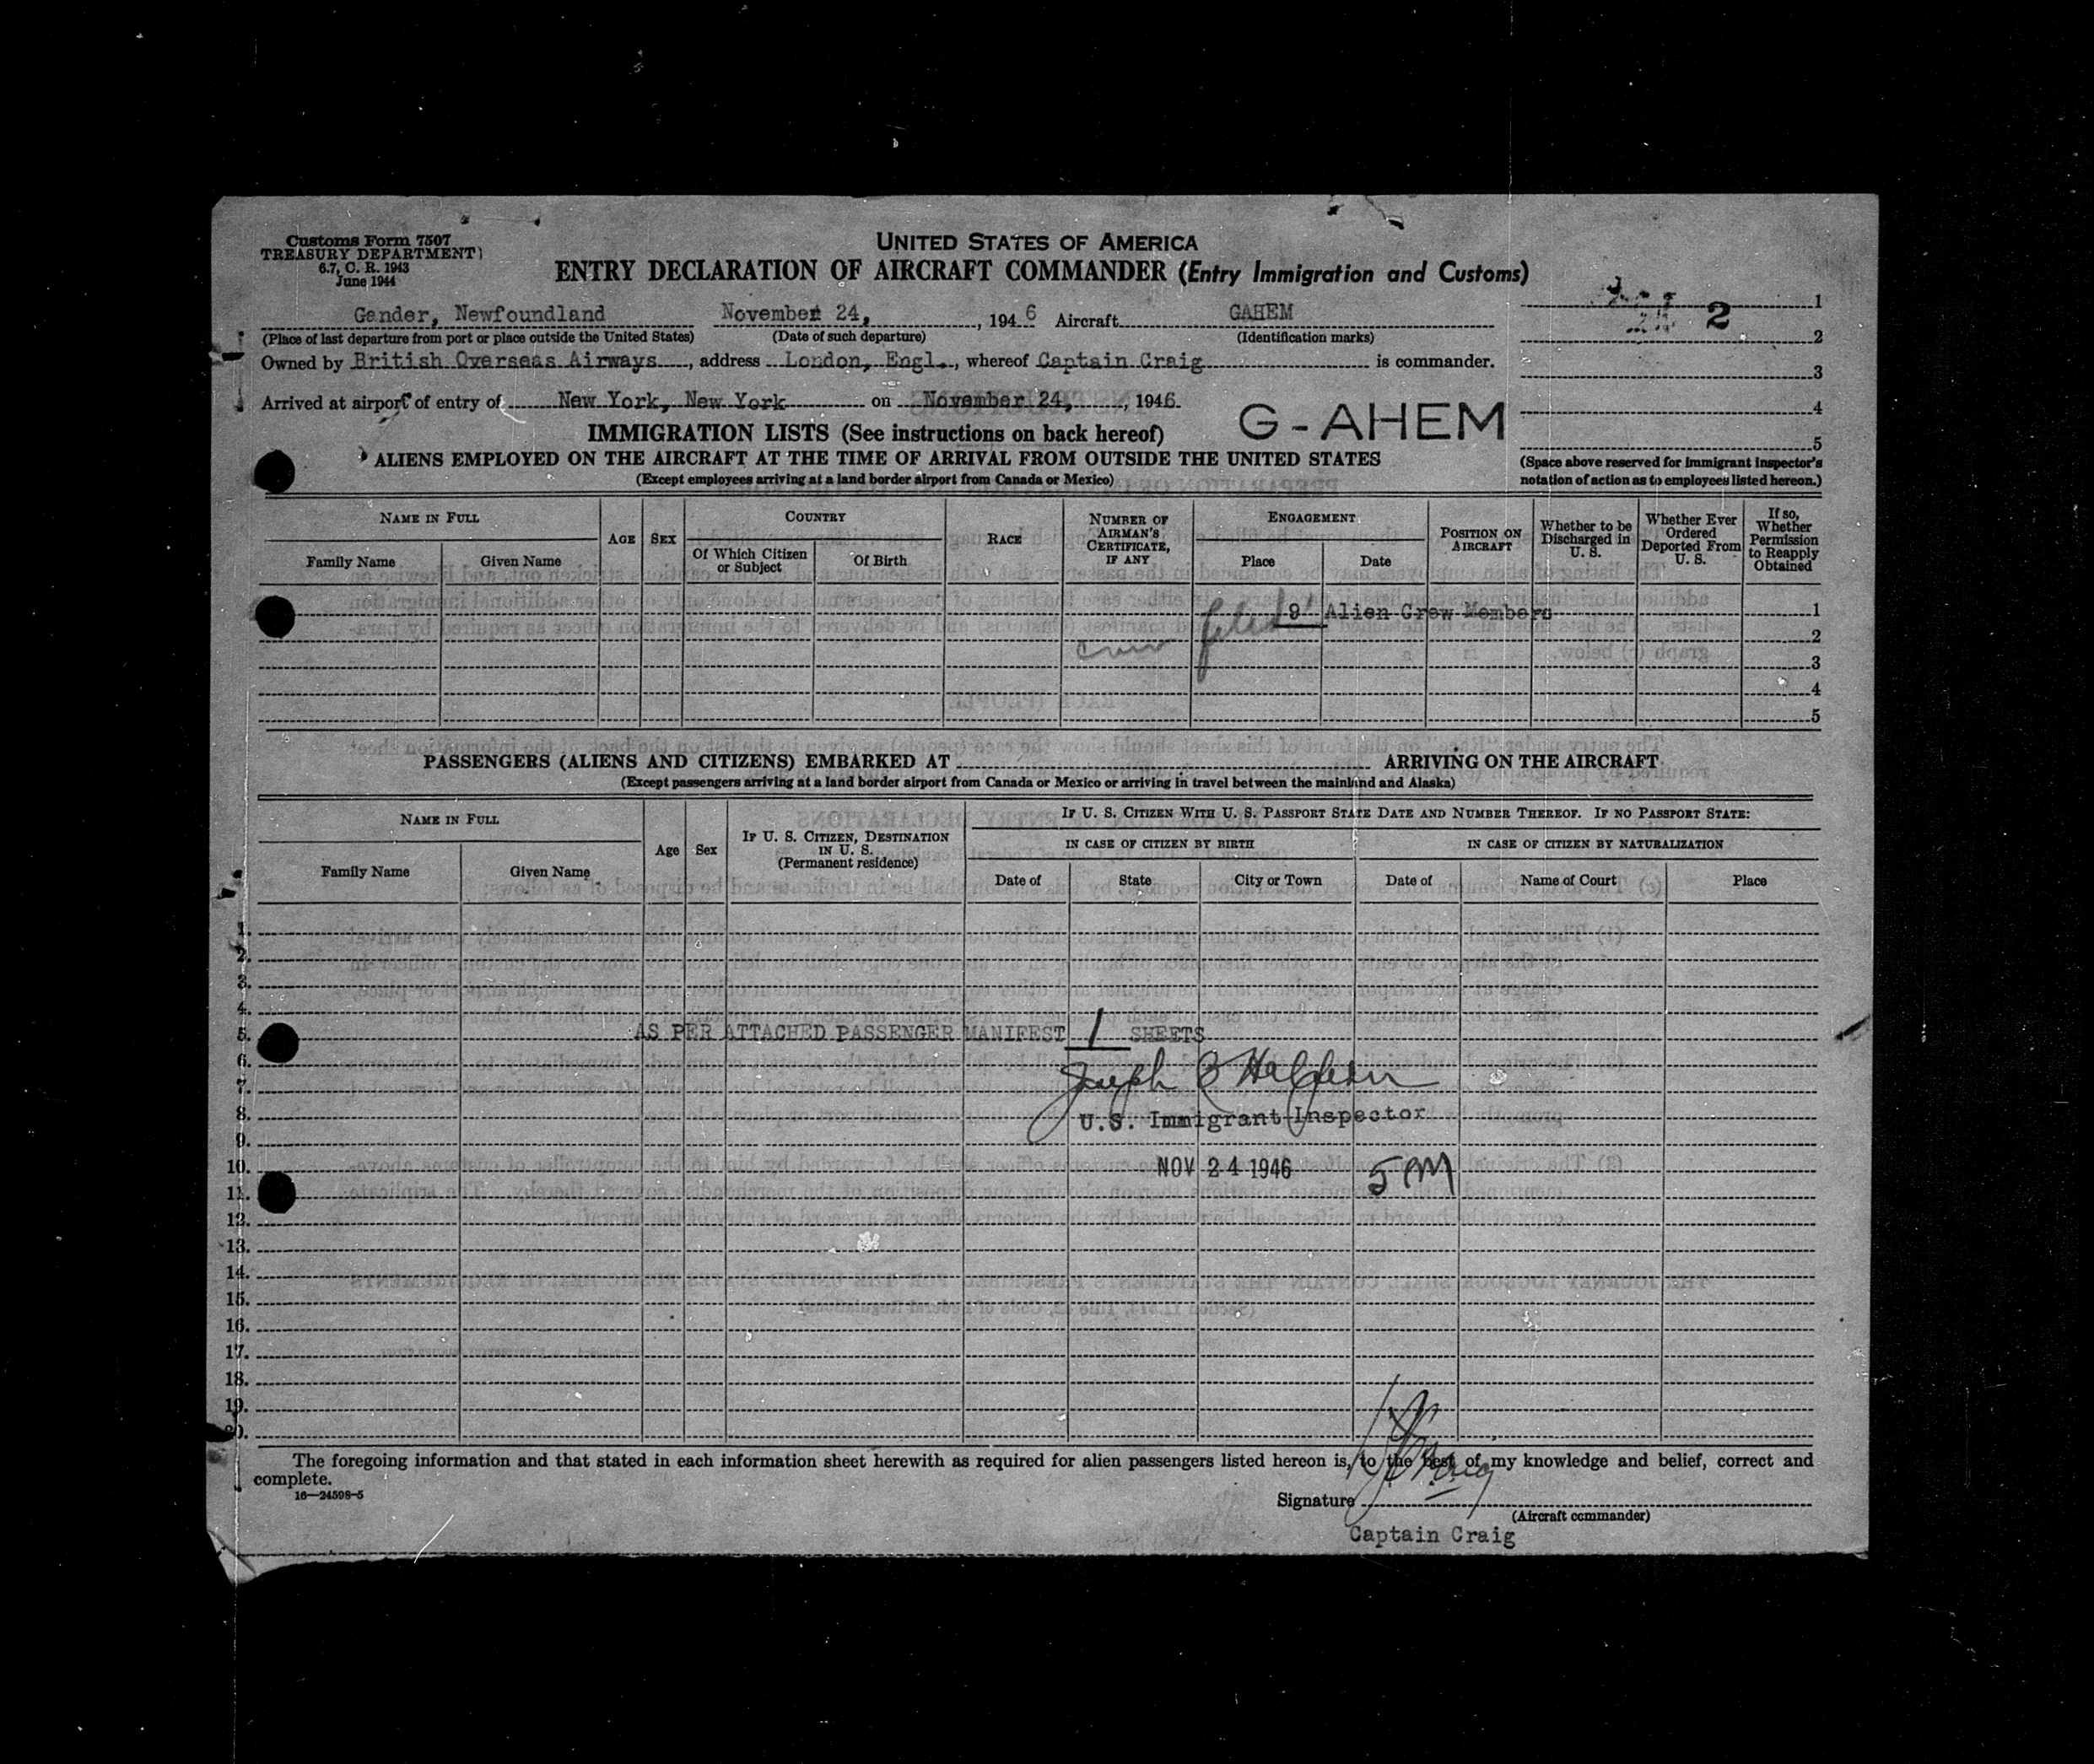 Customs Form 7507
TREASURY DEPARTMENT
6.7, C. R. 1943
June 1944
UNITED STATES OF AMERICA
ENTRY DECLARATION OF AIRCRAFT COMMANDER (Entry Immigration and Customs)
Gander, Newfoundland November 24, , 1946 Aircraft GAHEM
(Place of last departure from port or place outside the United States) (Date of such departure) (Identification marks)
Owned by British Overseas Airways, address London, Engl., whereof Captain Craig is commander.
Arrived at airport of entry of New York, New York on November 24, , 1946.
1
2
2
3
4
5
G-AHEM
IMMIGRATION LISTS (See instructions on back hereof)
ALIENS EMPLOYED ON THE AIRCRAFT AT THE TIME OF ARRIVAL FROM OUTSIDE THE UNITED STATES
(Except employees arriving at a land border airport from Canada or Mexico)
(Space above reserved for Immigrant Inspector's
notation of action as to employees listed hereon.)
NAME IN FULL
Family Name Given Name
AGE SEX
COUNTRY
Of Which Citizen or Subject Of Birth
RACE
NUMBER OF AIRMAN'S CERTIFICATE, IF ANY
ENGAGEMENT
Place Date
POSITION ON AIRCRAFT
Whether to be Discharged in U. S.
Whether Ever Ordered Deported From U. S.
If so, Whether Permission to Reapply Obtained
9 Alien Crew Members 1
crew filed 2
3
4
5
PASSENGERS (ALIENS AND CITIZENS) EMBARKED AT ARRIVING ON THE AIRCRAFT
(Except passengers arriving at a land border airport from Canada or Mexico or arriving in travel between the mainland and Alaska)
NAME IN FULL
Family Name Given Name
Age Sex
IF U. S. CITIZEN, DESTINATION IN U. S.
(Permanent residence)
IF U. S. CITIZEN WITH U. S. PASSPORT STATE DATE AND NUMBER THEREOF. IF NO PASSPORT STATE:
IN CASE OF CITIZEN BY BIRTH IN CASE OF CITIZEN BY NATURALIZATION
Date of State City or Town Date of Name of Court Place
1.
2.
3.
4.
5. AS PER ATTACHED PASSENGER MANIFEST 1 SHEETS
6.
7. Joseph C Halpern
8. U.S. Immigrant Inspector
9.
10. NOV 24 1946 5 PM
11.
12.
13.
14.
15.
16.
17.
18.
19.
20.
The foregoing information and that stated in each information sheet herewith as required for alien passengers listed hereon is, to the best of my knowledge and belief, correct and
complete.
16—24598-5
Signature
(Aircraft commander)
Captain Craig